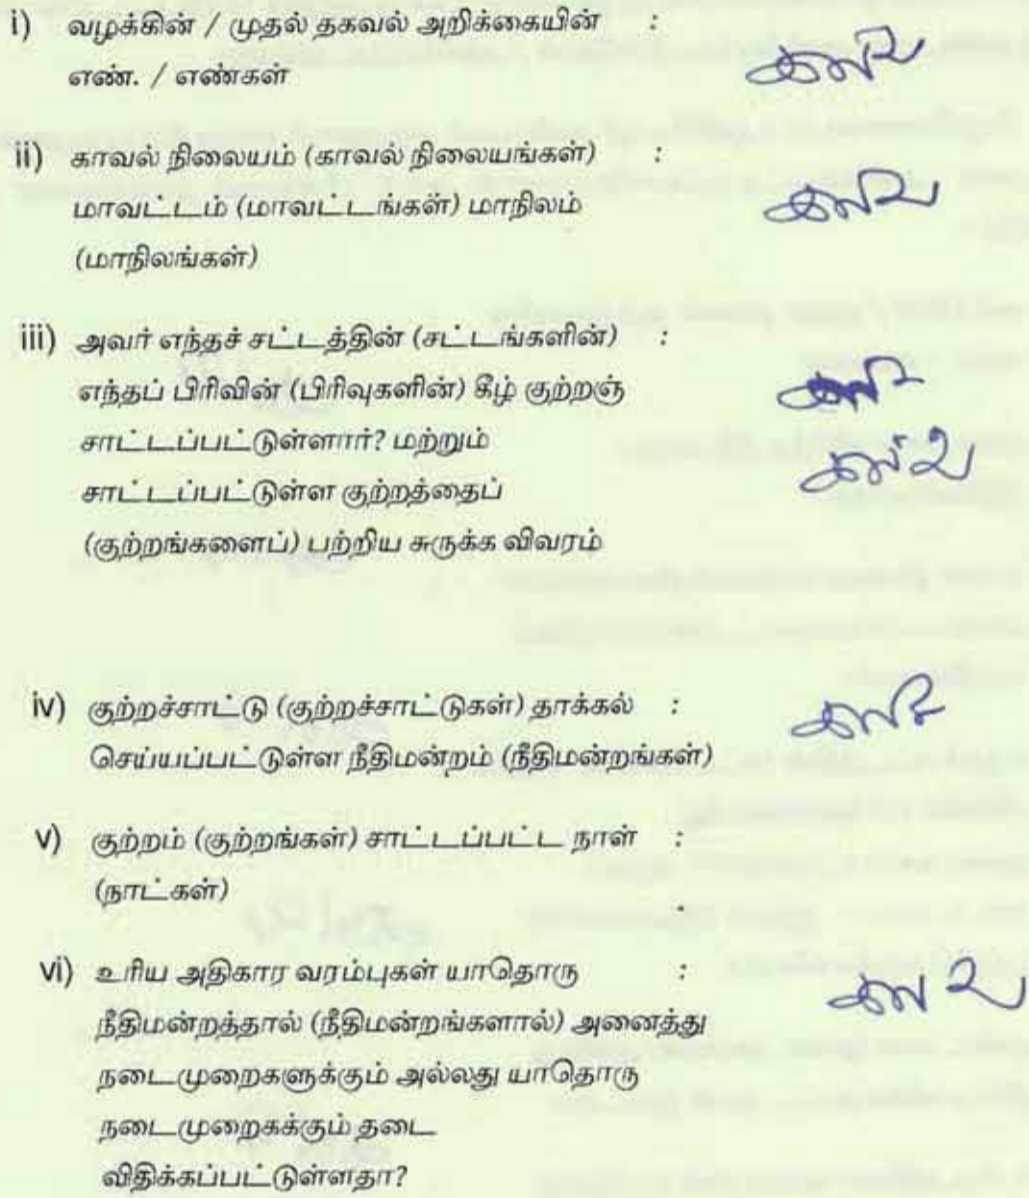 i) வழக்கின் / முதல் தகவல் அறிக்கையின் :
எண். / எண்கள்
ii) காவல் நிலையம் (காவல் நிலையங்கள்) :
மாவட்டம் (மாவட்டங்கள்) மாநிலம்
(மாநிலங்கள்)
iii) அவர் எந்தச் சட்டத்தின் (சட்டங்களின்) :
எந்தப் பிரிவின் (பிரிவுகளின்) கீழ் குற்றஞ்
சாட்டப்பட்டுள்ளார்? மற்றும்
சாட்டப்பட்டுள்ள குற்றத்தைப்
(குற்றங்களைப்) பற்றிய சுருக்க விவரம்
iv) குற்றச்சாட்டு (குற்றச்சாட்டுகள்) தாக்கல் :
செய்யப்பட்டுள்ள நீதிமன்றம் (நீதிமன்றங்கள்)
v) குற்றம் (குற்றங்கள்) சாட்டப்பட்ட நாள் :
(நாட்கள்)
vi) உரிய அதிகார வரம்புகள் யாதொரு :
நீதிமன்றத்தால் (நீதிமன்றங்களால்) அனைத்து
நடைமுறைகளுக்கும் அல்லது யாதொரு
நடைமுறைகக்கும் தடை
விதிக்கப்பட்டுள்ளதா?